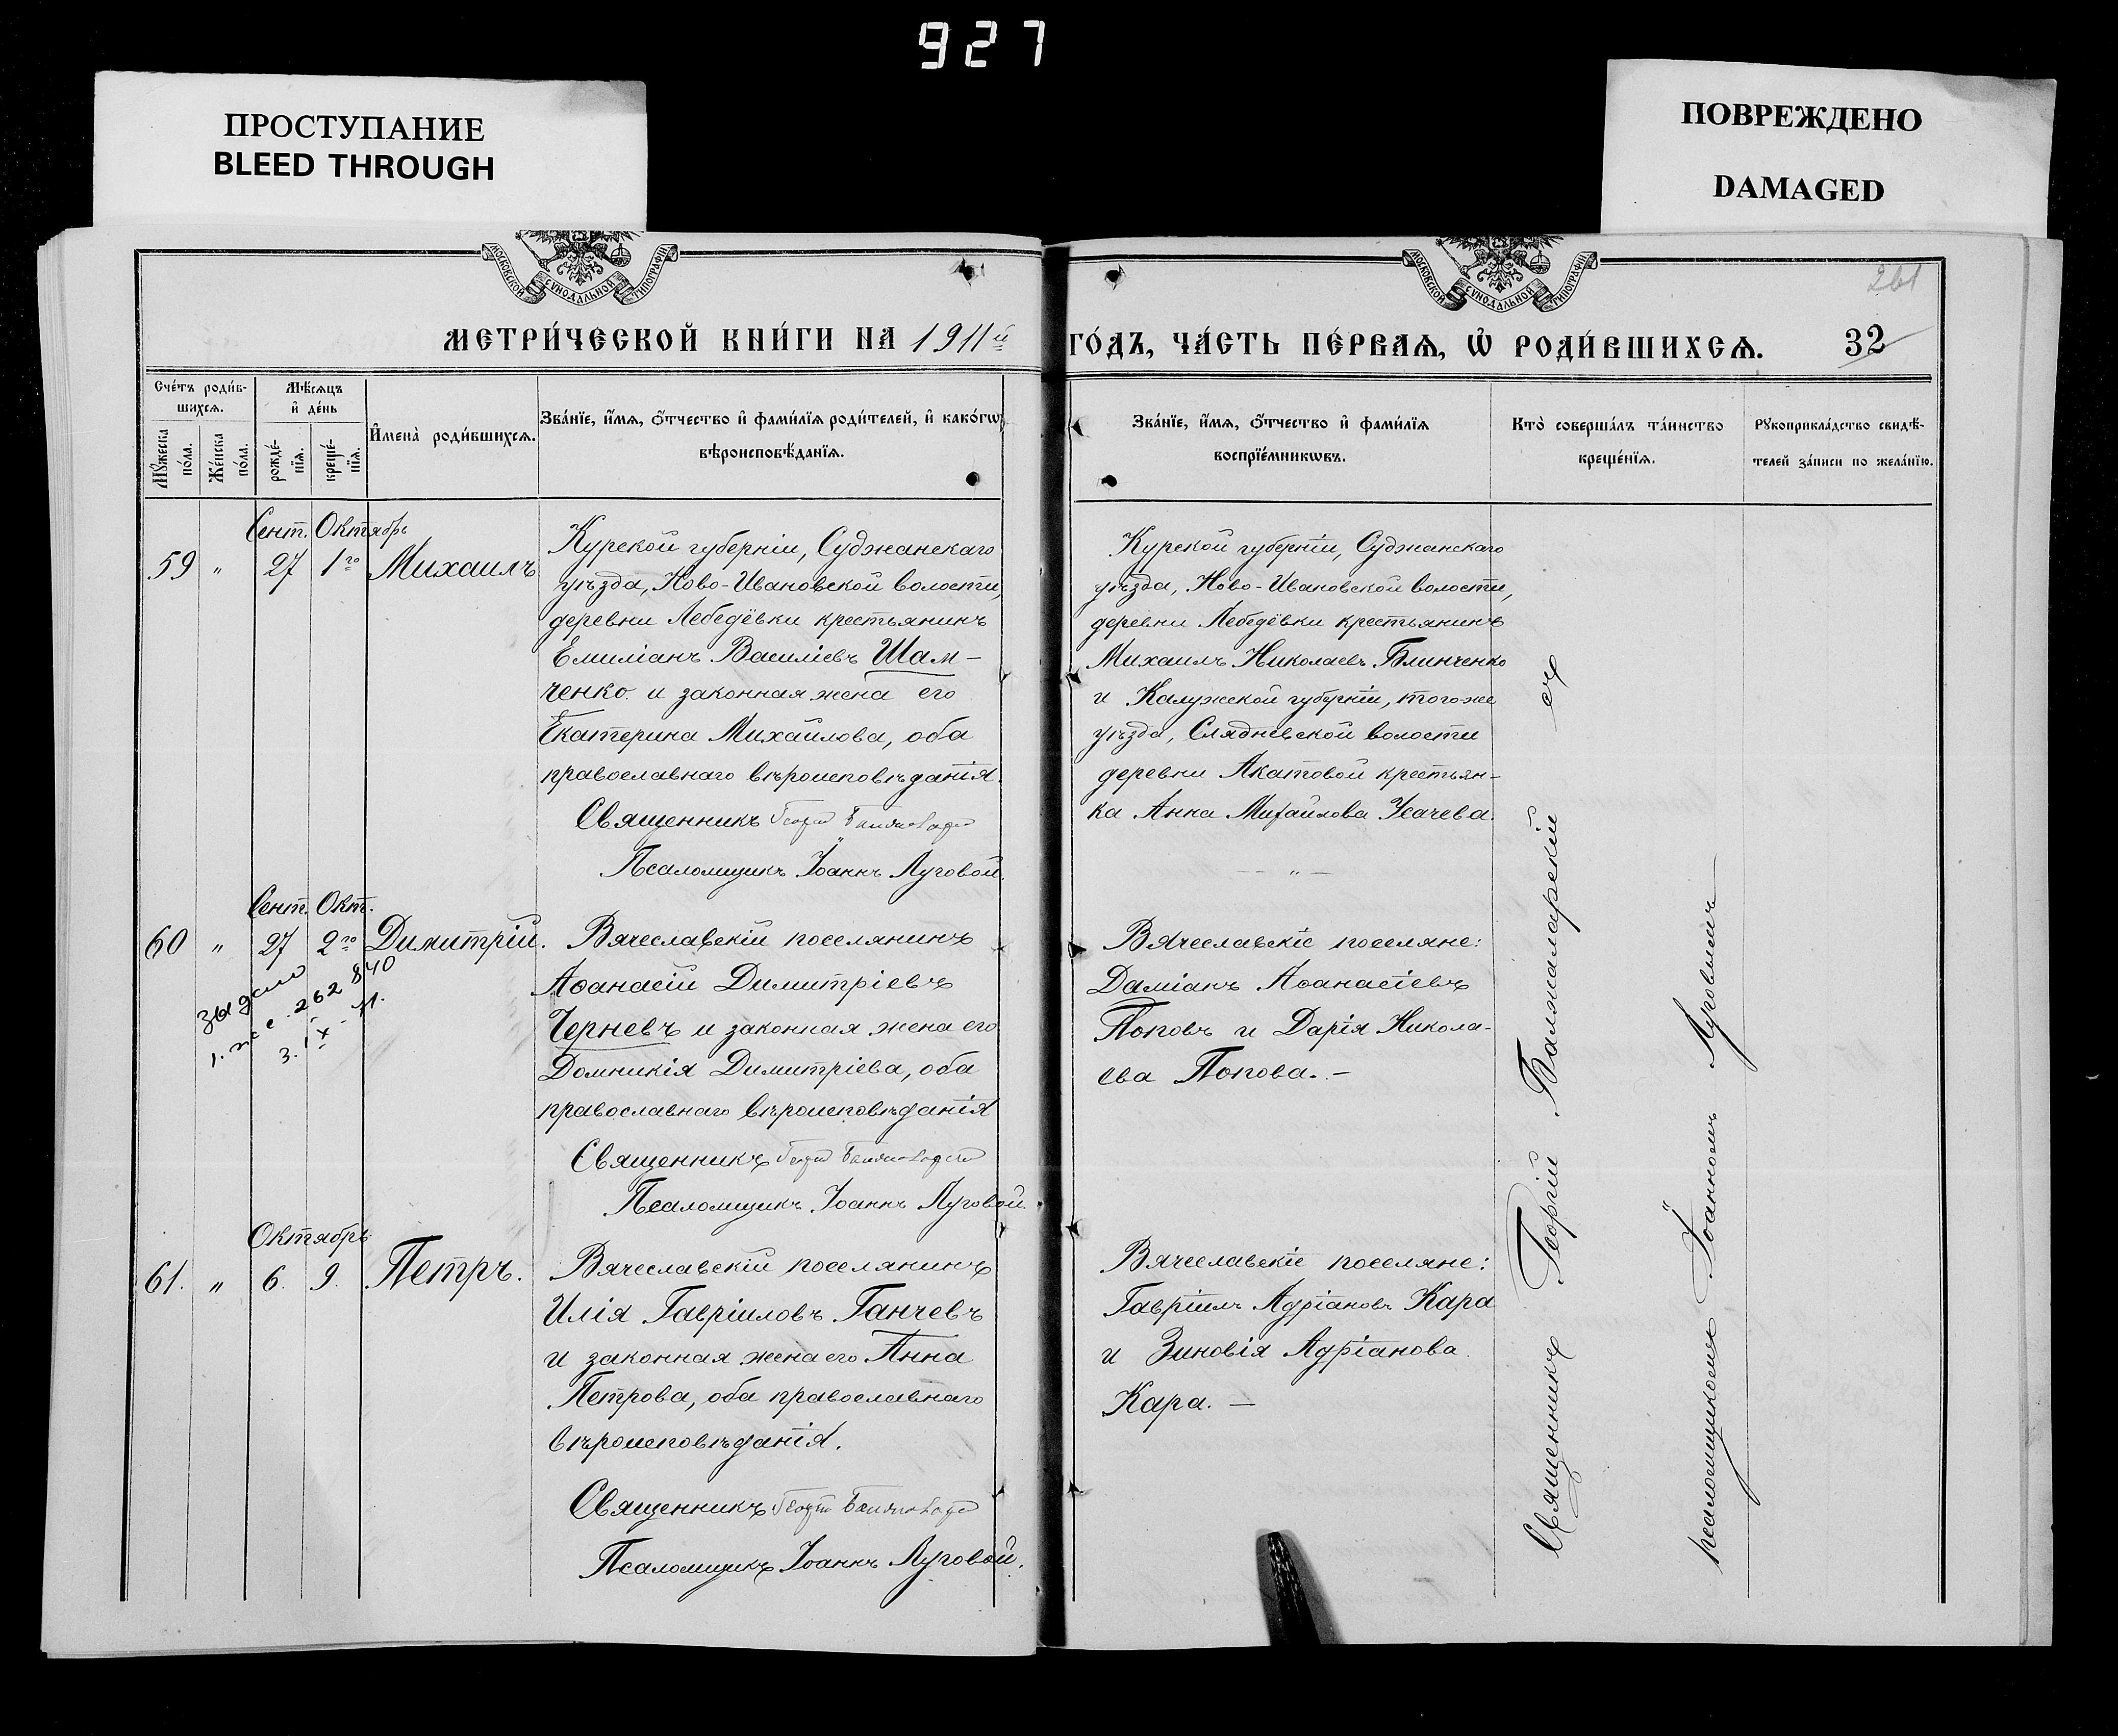 927
ПРОСТУПАНИЕ
BLEED THROUGH
ПОВРЕЖДЕНО
DAMAGED
МОСКОВСКОЙ СѴНОДАЛЬНОЙ ТИПОГРАФІИ
МОСКОВСКОЙ СѴНОДАЛЬНОЙ ТИПОГРАФІИ
261
МЕТРИ́ЧЕСКОЙ КНИ́ГИ НА 1911й
ГО́ДЪ, ЧА́СТЬ ПЕ́РВАѦ, Ѡ҆ РОДИ́ВШИХСѦ. 32
Сче́тъ роди́в-
шихсѧ.
Мꙋ́жеска
по́ла.
Же́нска
по́ла.
Мѣ́сѧцъ
и҆ де́нь
рожде́-
нїѧ.
креще́-
нїѧ.
И҆мена̀ роди́вшихсѧ.
Зва́нїе, и҆́мѧ, ѻ҆́тчество и҆ фами́лїѧ роди́телей, и҆ како́гѡ
вѣроисповѣ́данїѧ.
Зва́нїе, и҆́мѧ, ѻ҆́тчество и҆ фами́лїѧ
воспрїе́мникѡвъ.
Кто̀ соверша́лъ та́инство
креще́нїѧ.
Рꙋкоприкла́дство свидѣ́-
телей за́писи по жела́нїю.
Сент. Октябрь
59 " 27 1го Михаилъ
Курской губерніи, Суджанскаго
уѣзда, Ново-Ивановской волости,
деревни Лебедёвки крестьянинъ
Емиліанъ Василіевъ Шам-
ченко и законная жена его
Екатерина Михайлова, оба
православнаго вѣроисповѣданія.
Священникъ Георгій
Псаломщикъ Іоаннъ Луговой.
Курской губерніи, Суджанскаго
уѣзда, Ново-Ивановской волости,
деревни Лебедёвки крестьянинъ
Михаилъ Николаевъ Блинченко
и Калужской губерніи, того же
уѣзда, Сляднёвской волости
деревни Акатовой крестьян-
ка Анна Михайлова Усачева.
— " —
Сент. Окт.
60 " 27 2го Димитрій.
262840
Вячеславскій поселянинъ
Аѳанасій Димитріевъ
Черневъ и законная жена его
Домникія Димитріева, оба
православнаго вѣроисповѣданія
Священникъ Георгій
Псаломщикъ Іоаннъ Луговой.
Вячеславскіе поселяне:
Даміанъ Аѳанасіевъ
Поповъ и Дарія Никола-
ева Попова. —
Октябрь
61. " 6. 9. Петръ.
Вячеславскій поселянинъ
Илія Гавріиловъ Ганчевъ
и законная жена его Анна
Петрова, оба православнаго
вѣроисповѣданія.
Священникъ Георгій
Псаломщикъ Іоаннъ Луговой.
Вячеславскіе поселяне:
Гавріилъ Адріановъ Кара
и Зиновія Адріанова
Кара. —
Священникъ Георгій Балжаларскій съ
псаломщикомъ Іоанномъ Луговымъ —